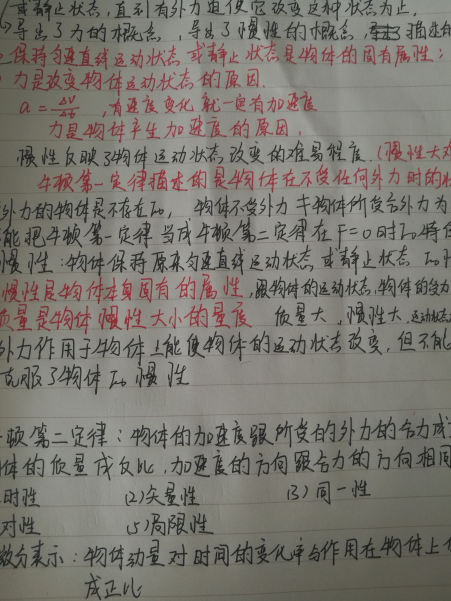 或静止状态,直到有外力迫使它改变这种状态为止.
导出了力的概念,导出了惯性的概念,
保持匀速直线运动状态或静止状态是物体的固有属性;
力是改变物体运动状态的原因.
a = ΔV/Δt,有速度变化就一定有加速度
力是物体产生加速度的原因.
惯性反映了物体运动状态改变的难易程度.(惯性大
牛顿第一定律描述的是物体在不受任何外力时的
外力的物体是不存在的, 物体不受外力 物体所受合外力为
能把牛顿第一定律当成牛顿第二定律在F=0时的特
惯性:物体保持原来匀速直线运动状态或静止状态的
惯性是物体本身固有的属性,跟物体的运动状态,物体的受力
质量是物体惯性大小的量度 质量大,惯性大,运动状态
外力作用于物体上能使物体的运动状态改变,但不能
克服了物体的惯性
顿第二定律:物体的加速度跟所受的外力的合力成
体的质量成反比,加速度的方向跟合力的方向相同
时性 (2)矢量性 (3)同一性
对性 (5)局限性
微分表示:物体动量对时间的变化率与作用在物体上
成正比